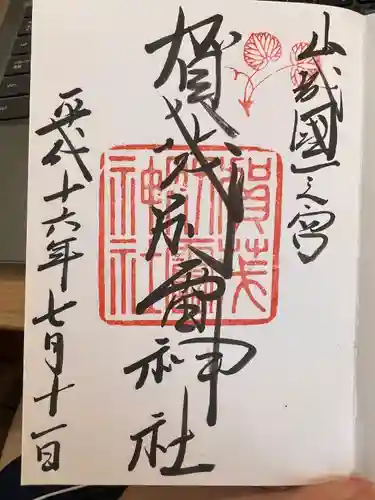 山城國一之宮
賀茂別雷神社
賀茂
別雷
神社
平成十六年七月十一日